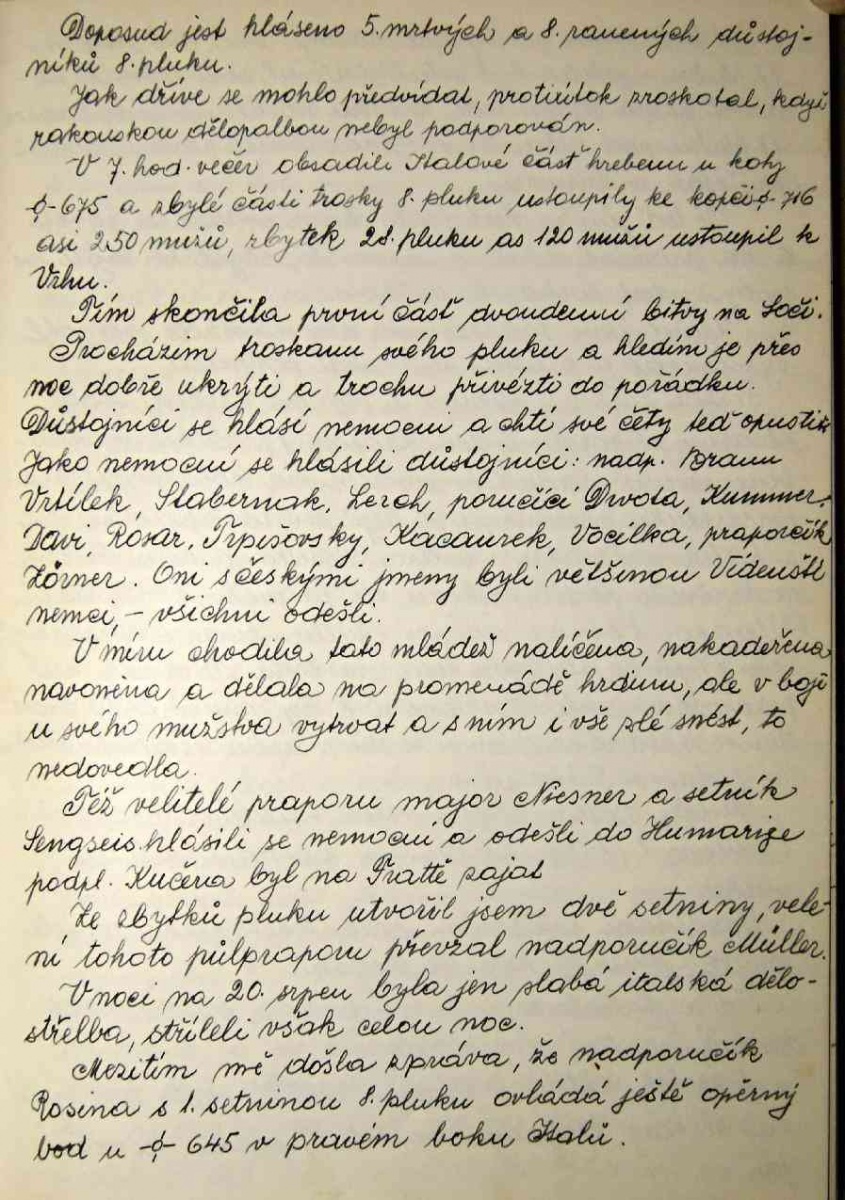 Doposud jest hlášeno 5. mrtvých a 8. raněných důstoj-
níků 8. pluku.
Jak dříve se mohlo předvídat, protiútok zroskotal, když
rakouskou dělopalbou nebyl podporován.
V 7. hod. večer obsadili Italové část hrebenu u koty
-ϕ- 675 a zbylé části trosky 8. pluku ustoupily ke kopci -ϕ- 716
asi 250 mužů, zbytek 28. pluku as 120 mužů ustoupil k
Vrhu.
Tím skončila první část dvoudenní bitvy na Soči.
Procházím troskami svého pluku a hledím je přes
noc dobře ukrýti a trochu přivézti do pořádku.
Důstojníci se hlásí nemocni a chtí své čety teď opustit.
Jako nemocní se hlásili důstojníci: nadp. Braun
Vrtílek, Stabernak, Lerch, poručíci Dwota, Kummer,
Davi, Rosar, Trpišovsky, Kacaurek, Vocilka, praporčík
Lörner. Oni s českými jmeny byli většinou Vídenští
nemci, – všichni odešli.
V míru chodila tato mládež nalíčena, nakadeřena
navoněna a dělala na promenádě hrdinu, ale v boji
u svého mužstva vytrvat a s ním i vše zlé snést, to
nedovedla.
Též velitelé praporu major Niesner a setník
Sengseis hlásili se nemocni a odešli do Humarije
podpl. Kučera byl na Prattě zajat
Ze zbytků pluku utvořil jsem dvě setniny, vele-
ní tohoto půlpraporu převzal nadporučík Müller.
V noci na 20. srpen byla jen slabá italská dělo-
střelba, stříleli však celou noc.
Mezitím mě došla zpráva, že nadporučík
Rosina s 1. setninou 8. pluku ovládá ještě opěrný
bod u -ϕ- 645 v pravém boku Italů.